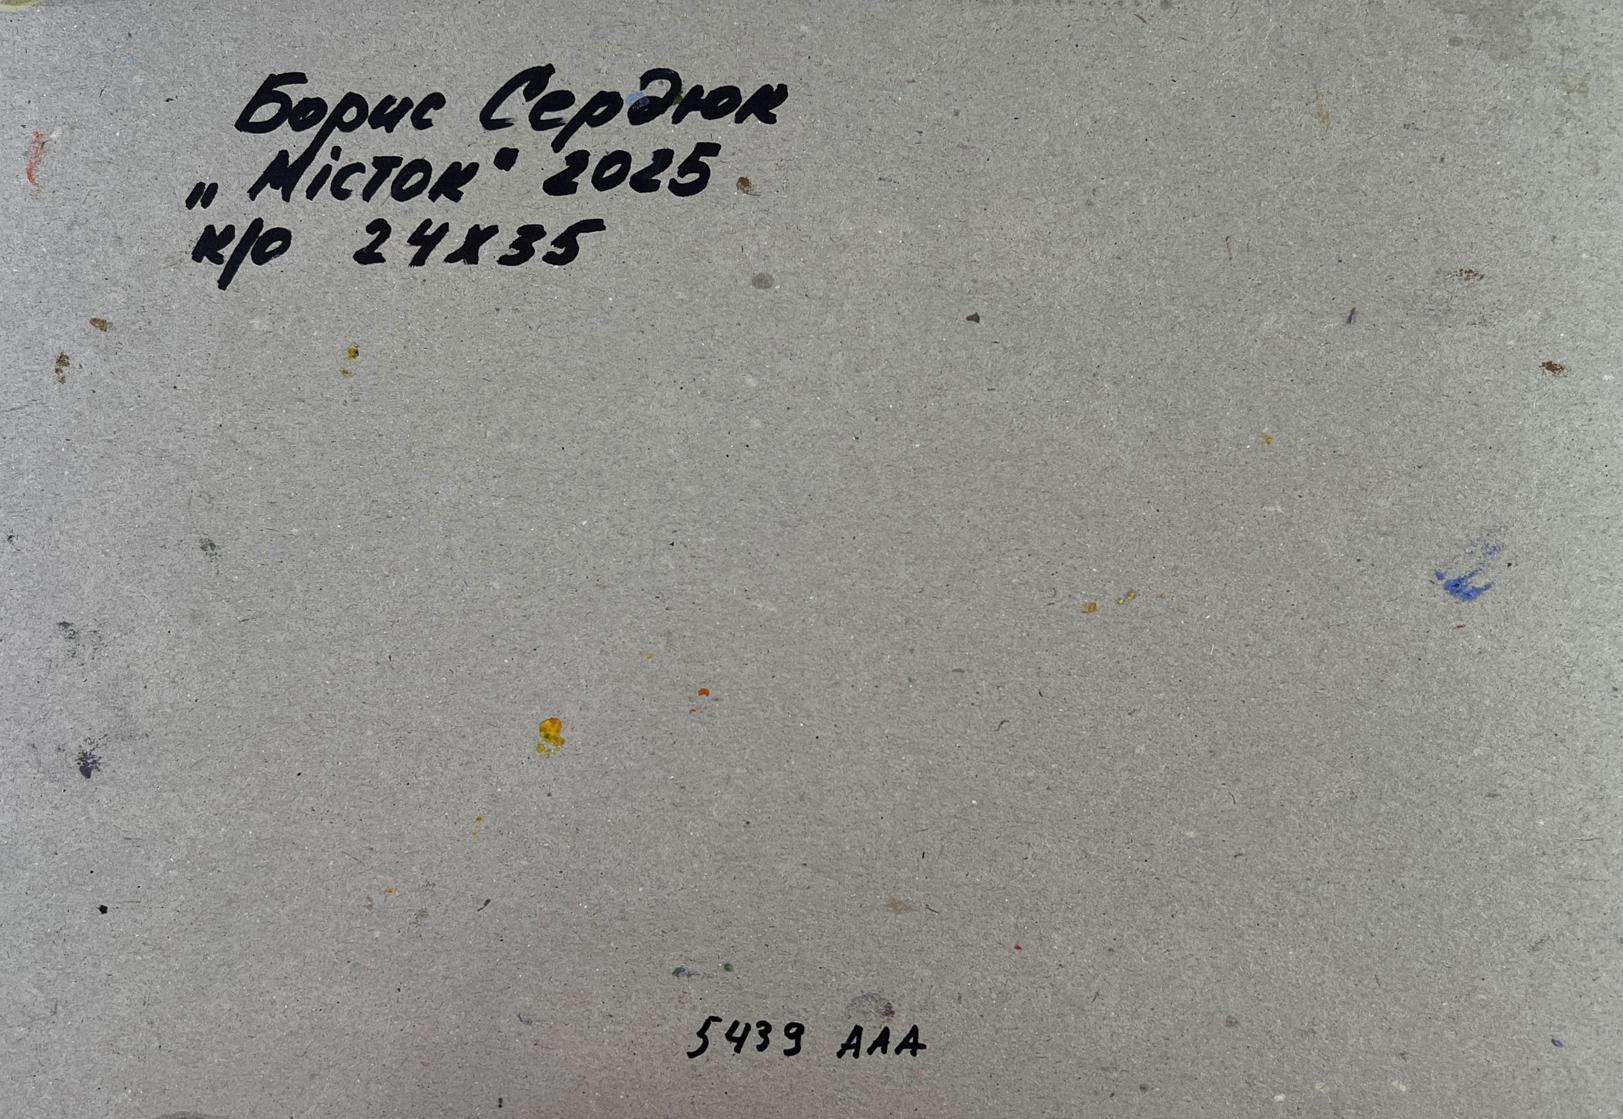 Борис Сердюк
„Місток" 2025
к/о 24х35
5439 ААА